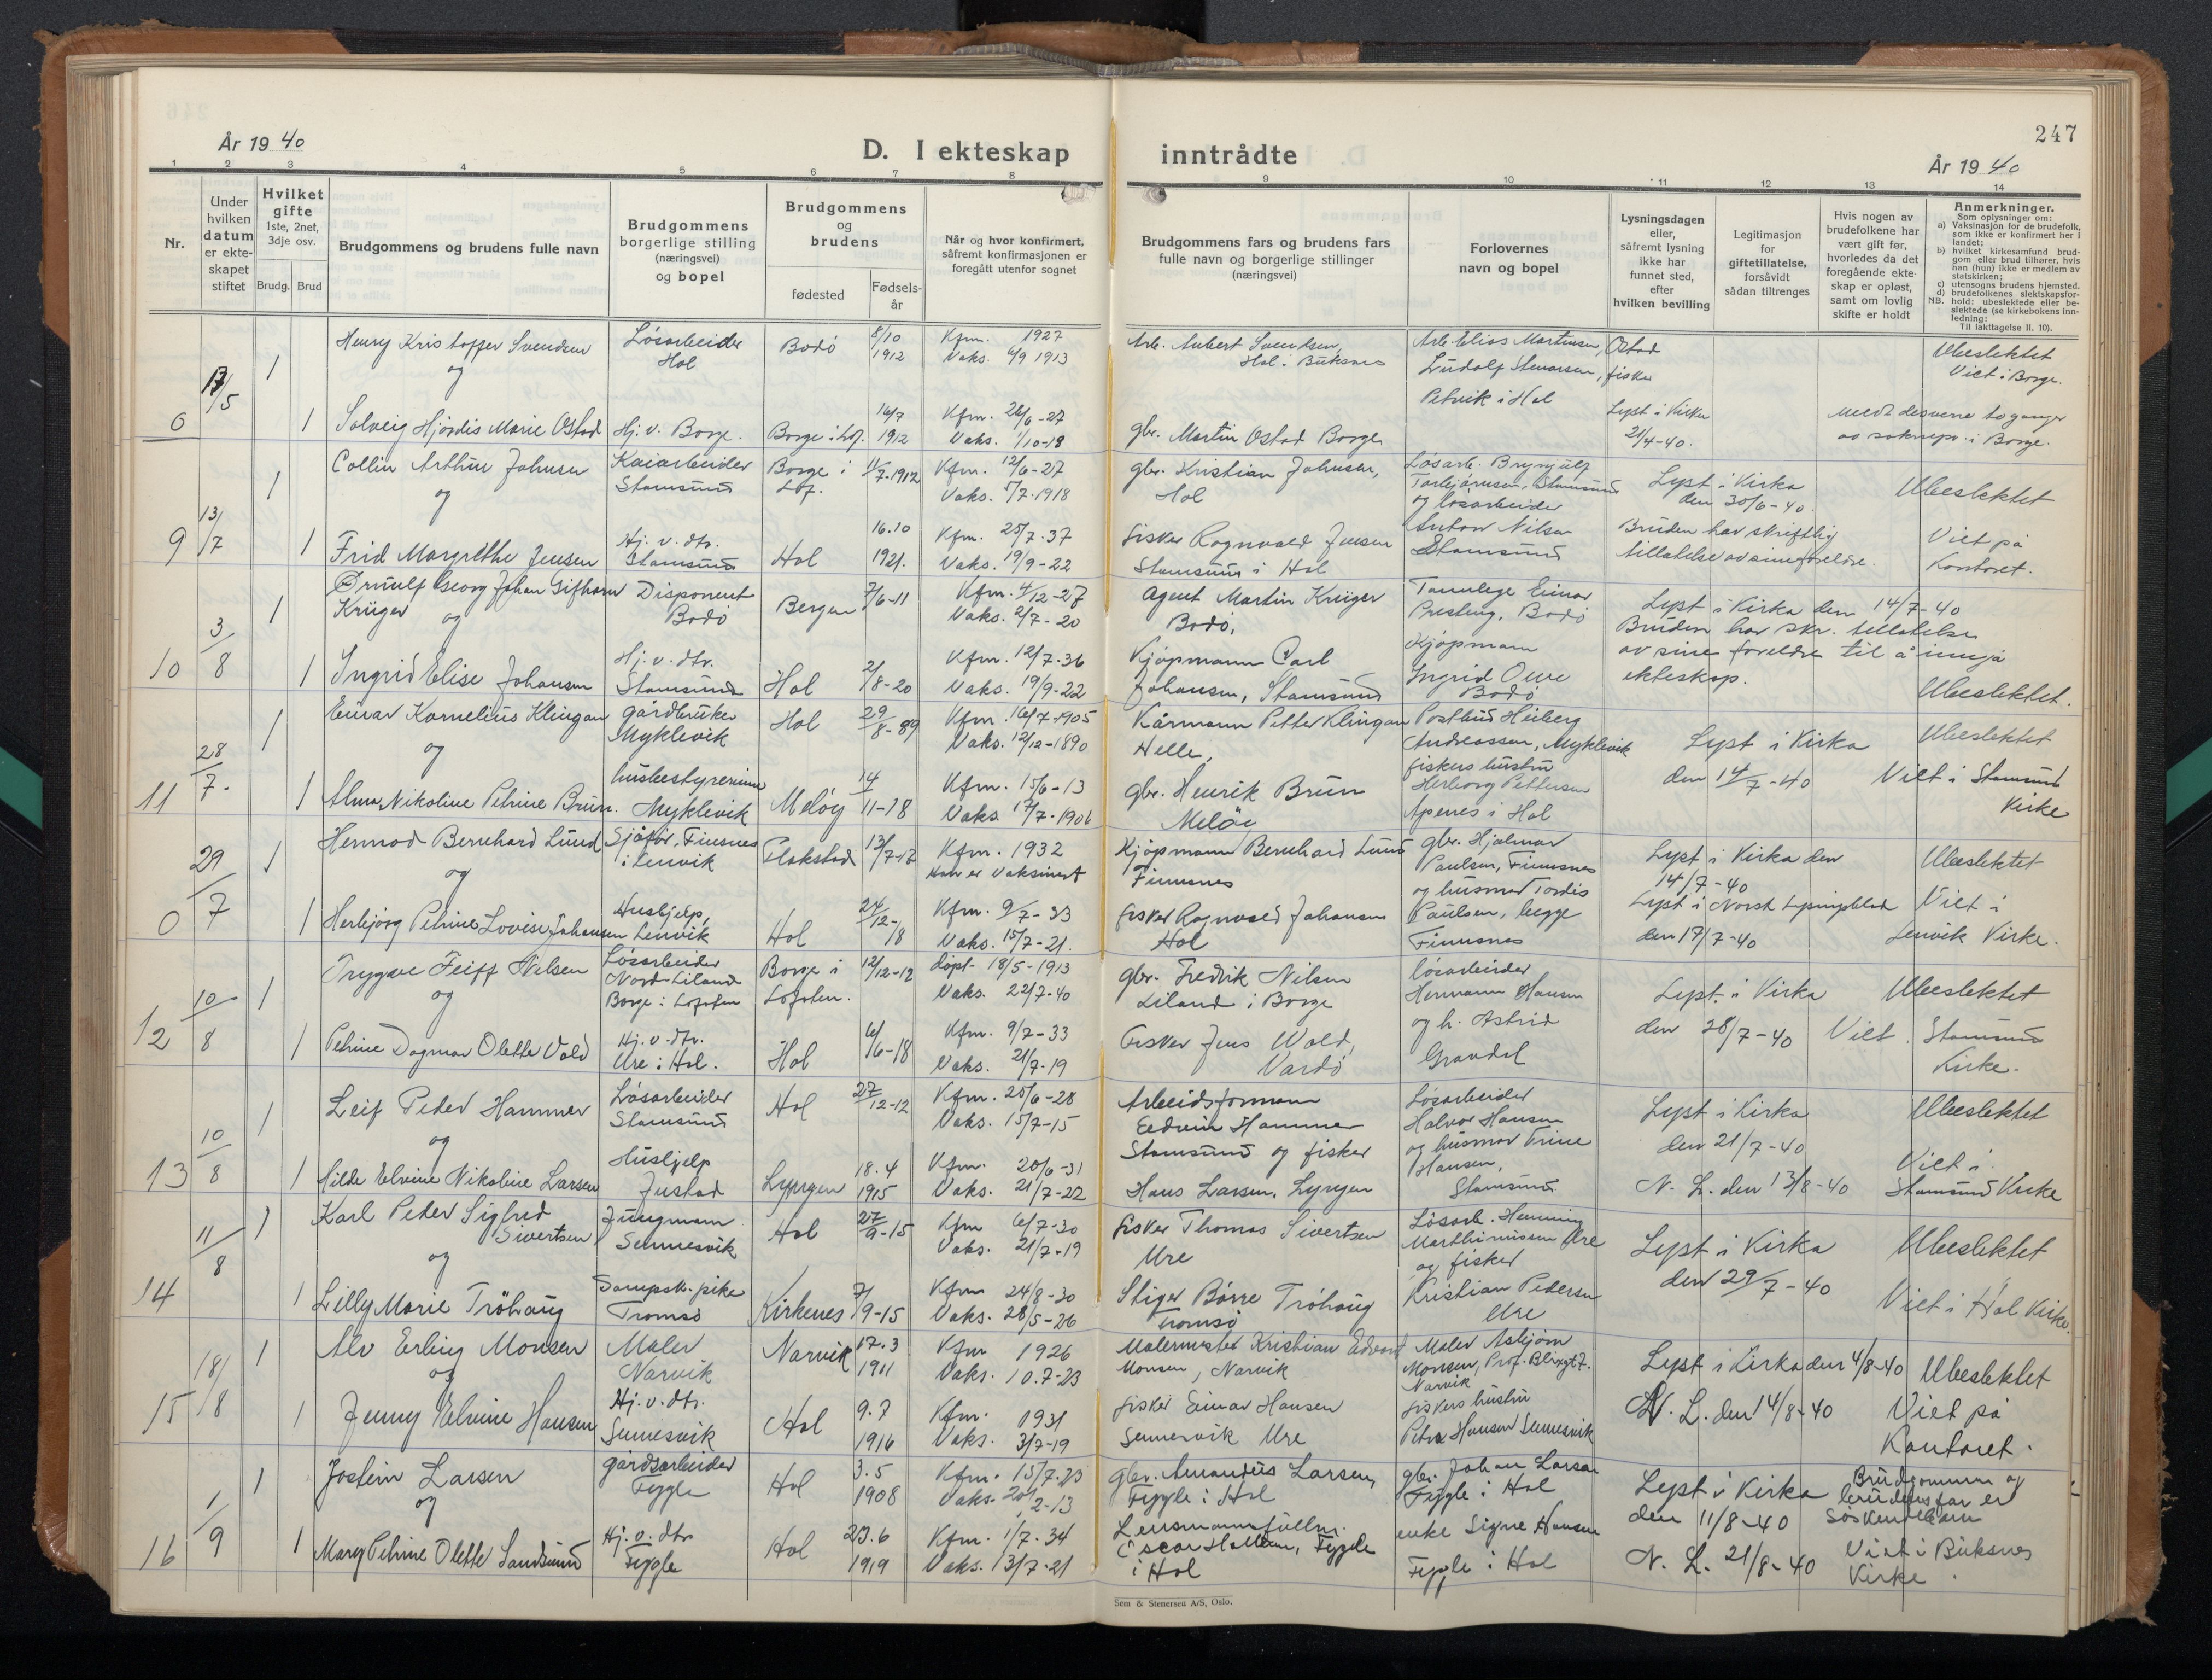 247
År 1940
D. I ekteskap inntrådte
År 1940
1 2 3 4 5 6 7 8 9 10 11 12 13 14
Nr.
Under
hvilken
datum
er ekte-
skapet
stiftet
Hvilket
gifte
1ste, 2net,
3dje osv.
Brudg. Brud
Brudgommens og brudens fulle navn
Brudgommens
borgerlige stilling
(næringsvei)
og bopel
Brudgommens
og
brudens
fødested
Fødsels-
år
Når og hvor konfirmert,
såfremt konfirmasjonen er
foregått utenfor sognet
Brudgommens fars og brudens fars
fulle navn og borgerlige stillinger
(næringsvei)
Forlovernes
navn og bopel
Lysningsdagen
eller,
såfremt lysning
ikke har
funnet sted,
efter
hvilken bevilling
Legitimasjon
for
giftetillatelse,
forsåvidt
sådan tiltrenges
Hvis nogen av
brudefolkene har
vært gift før,
hvorledes da det
foregående ekte-
skap er opløst,
samt om lovlig
skifte er holdt
Anmerkninger.
Som oplysninger om:
a) Vaksinasjon for de brudefolk,
som ikke er konfirmert her i
landet;
b) hvilket kirkesamfund brud-
gom eller brud tilhører, hvis
han (hun) ikke er medlem av
statskirken;
c) utensogns brudens hjemsted.
d) brudefolkenes slektskapsfor-
NB. hold: ubeslektede eller be-
slektede (se kirkebokens inn-
ledning:
Til iakttagelse II. 10).
0
/5
1
Henry Kristoffer Svendsen
og
Løsarbeider
Hol
Bodø
8/10
1912
Kfm. 1927
Vaks. 6/9 1913
Arb. Aubert Svendsen,
Hol i Buksnes
Arb. Elias Martinsen, Ostad
Ludolf Stenersen, fisker
Petvik i Hol
Ubeslektet
Viet i Borge.
1
Solveig Hjørdis Marie Ostad
Hj. v. Borge.
Borge i Lof.
16/7
1912
Kfm. 26/6-27
Vaks. 1/10-18
gbr. Martin Ostad Borge
Lyst i Kirka
21/4-40.
av sokнepr. i Borge.
9
13/7
1
Collin Arthur Johnsen
og
Kaiarbeider
Stamsund
Borge i
Lof.
11/7-1912
Kfm. 12/6-27
Vaks. 5/7-1918
gbr. Kristian Johnsen,
Hol
Løsarb. Brynjulf
Torbjørnsen, Stamsund
og løsarbeider
Anton Nilsen
Stamsund
Lyst i Kirka
den 30/6-40.
Bruden har skriftlig
tillatelse av sine foreldre.
Ubeslektet
Viet på
Kontoret.
1
Frid Margrethe Jensen
Hj. v. dtr.
Stamsund
Hol
16.10
1921.
Kfm. 25/7-37
Vaks. 19/9-22
fisker Ragnvald Jensen
Stamsund i Hol
10
3/8
1
Ørnulf Georg Johan Gifhorn
Krüger og
Disponent
Bodø
Bergen
7/6-11
Kfm. 4/12-27
Vaks. 2/7-20
Agent Martin Krüger
Bodø,
Tannlege Einar
Presteng, Bodø
Kjøpmann
Ingrid Owe
Bodø
Lyst i Kirka den 14/7-40
Bruden har skr. tillatelse
av sine foreldre til å inngå
ekteskap.
Ubeslektet.
1
Ingrid Elise Johansen
Hj. v. dtr.
Stamsund
Hol
2/8-20
Kfm. 12/7-36
Vaks. 19/9-22
Kjøpmann Carl
Johansen, Stamsund
11
28/7.
1
Einar Kornelius Klingan
og
gårdbruker
Myklevik
Hol
29/8-89
Kfm. 16/7-1905
Vaks. 12/12-1890
Kårmann Petter Klingan
Helle,
Postbud Heiberg
Andreassen, Myklevik
fiskers hustru
Herborg Pettersen
Apenes i Hol
Lyst i Kirka
den 14/7-40
Ubeslektet
Viet i Stamsund
Kirke
1
Alma Nikoline Petrine Brun.
husbestyrerinne
Myklevik
Meløy
14/11-
Kfm. 15/6-13
Vaks. 17/7-1906
gbr. Henrik Brun
Meløy
0
29/7
1
Hermod Bernhard Lund
og
Sjåfør, Finsnes
i Lenvik
Flakstad
13/7-17
Kfm. 1932
Han er vaksinert
Kjøpmann Bernhard Lund
Finnsnes
gbr. Hjalmar
Paulsen, Finnsnes
og husmor Tordis
Paulsen, begge
Finnsnes
Lyst i Kirka den
14/7-40
Lyst i Norsk Lysingsblad
den 17/7-40
Ubeslektet
Viet i
Lenvik Kirke.
1
Herbjørg Petrine Lovise Johansen
Hushjelp,
Lenvik
Hol
24/12-18
Kfm. 9/7-33
Vaks. 15/7-21.
fisker Ragnvald Johansen
Hol
12
10/8
1
Trygve Feiff Nilsen
og
Løsarbeider
Nord-Liland
Borge i Lofoten
Borge i
Lofoten.
12/12-12
døpt 18/5-1913
Vaks. 22/7-40
gbr. Fredrik Nilsen
Liland i Borge
løsarbeider
Hermann Hansen
og h. Astrid
Gravdal
Lyst i Kirka
den 28/7-40
Ubeslektet
Viet i Stamsund
Kirke.
1
Petrine Dagmar Olette Vold
Hj. v. dtr.
Ure i Hol.
Hol
6/6-18
Kfm. 9/7-33
Vaks. 21/7-19
fisker Jens Wold,
Vardø
13
10/8
1
Leif Peder Hammer
og
Løsarbeider
Stamsund
Hol
27/12-12
Kfm. 25/6-28
Vaks. 15/7-15
Arbeidsformann
Edvin Hammer
Stamsund og fisker
Løsarbeider
Halvor Hansen
og husmor Trine
Hansen,
Stamsund
Lyst i Kirka
den 21/7-40
N. L. den 13/8-40
Ubeslektet
Viet i
Stamsund Kirke
1
Hilda Elvine Nikoline Larsen
Hushjelp
Justad
Lyngen
18.4
1915
Kfm. 20/6-31
Vaks. 21/7-22
Hans Larsen, Lyngen
14
11/8
1
Karl Peder Sigfred
Sivertsen
og
Jungmann
Sennesvik
Hol
27/9-15
Kfm 6/7-30
Vaks. 21/7-19
fisker Thomas Sivertsen
Ure
Løsarb. Henning
Marthinussen Ure
og fisker
Kristian Pedersen
Ure
Lyst i Kirka
den 29/7-40
Ubeslektet
Viet i Hol Kirke.
1
Lilly Marie Trøhaug
Dampsk. pike
Tromsø
Kirkenes
7/9-15
Kfm 24/8-30
Vaks. 28/5-26
Stiger Børre Trøhaug
Tromsø
15
18/8
1
Alv Erling Monsen
og
Maler
Narvik
Narvik
17.3
1911
Kfm 1926
Vaks. 10.7-23
Malermester Kristian Edvard
Monsen, Narvik
Maler Asbjørn
Monsen, Prof. Blixgt 7.
Narvik
fiskers hustru
Petra Hansen Sennesvik
Lyst i Kirka den 4/8-40
N. L. den 14/8-40
Ubeslektet
Viet på
Kontoret.
1
Jenny Elvine Hansen
Hj. v. dtr.
Sennesvik
Hol
9.7
1916
Kfm. 1931
Vaks. 3/7-19
fisker Einar Hansen
Sennesvik Ure
16
1/9
1
Jostein Larsen
og
gårdsarbeider
Fygle
Hol
3.5
1908
Kfm. 15/7-23
Vaks. 20/2-13
gbr. Amandus Larsen,
Fygle i Hol
gbr. Johan Larsen
Fygle i Hol
enke Signe Hansen
Fygle i Hol
Lyst i Kirka
den 11/8-40
N. L. 21/8-40
Brudgommen og
brudens far er
søskendebarn
Viet i Buksnes
Kirke.
1
Mary Petrine Olette Sandsund
Hj. v. dtr
Fygle
Hol
23.6
1919
Kfm. 1/7-34
Vaks. 13/7-21
Lensmannsfullm.
Fygle
i Hol
Sem & Stenersen A/S, Oslo.